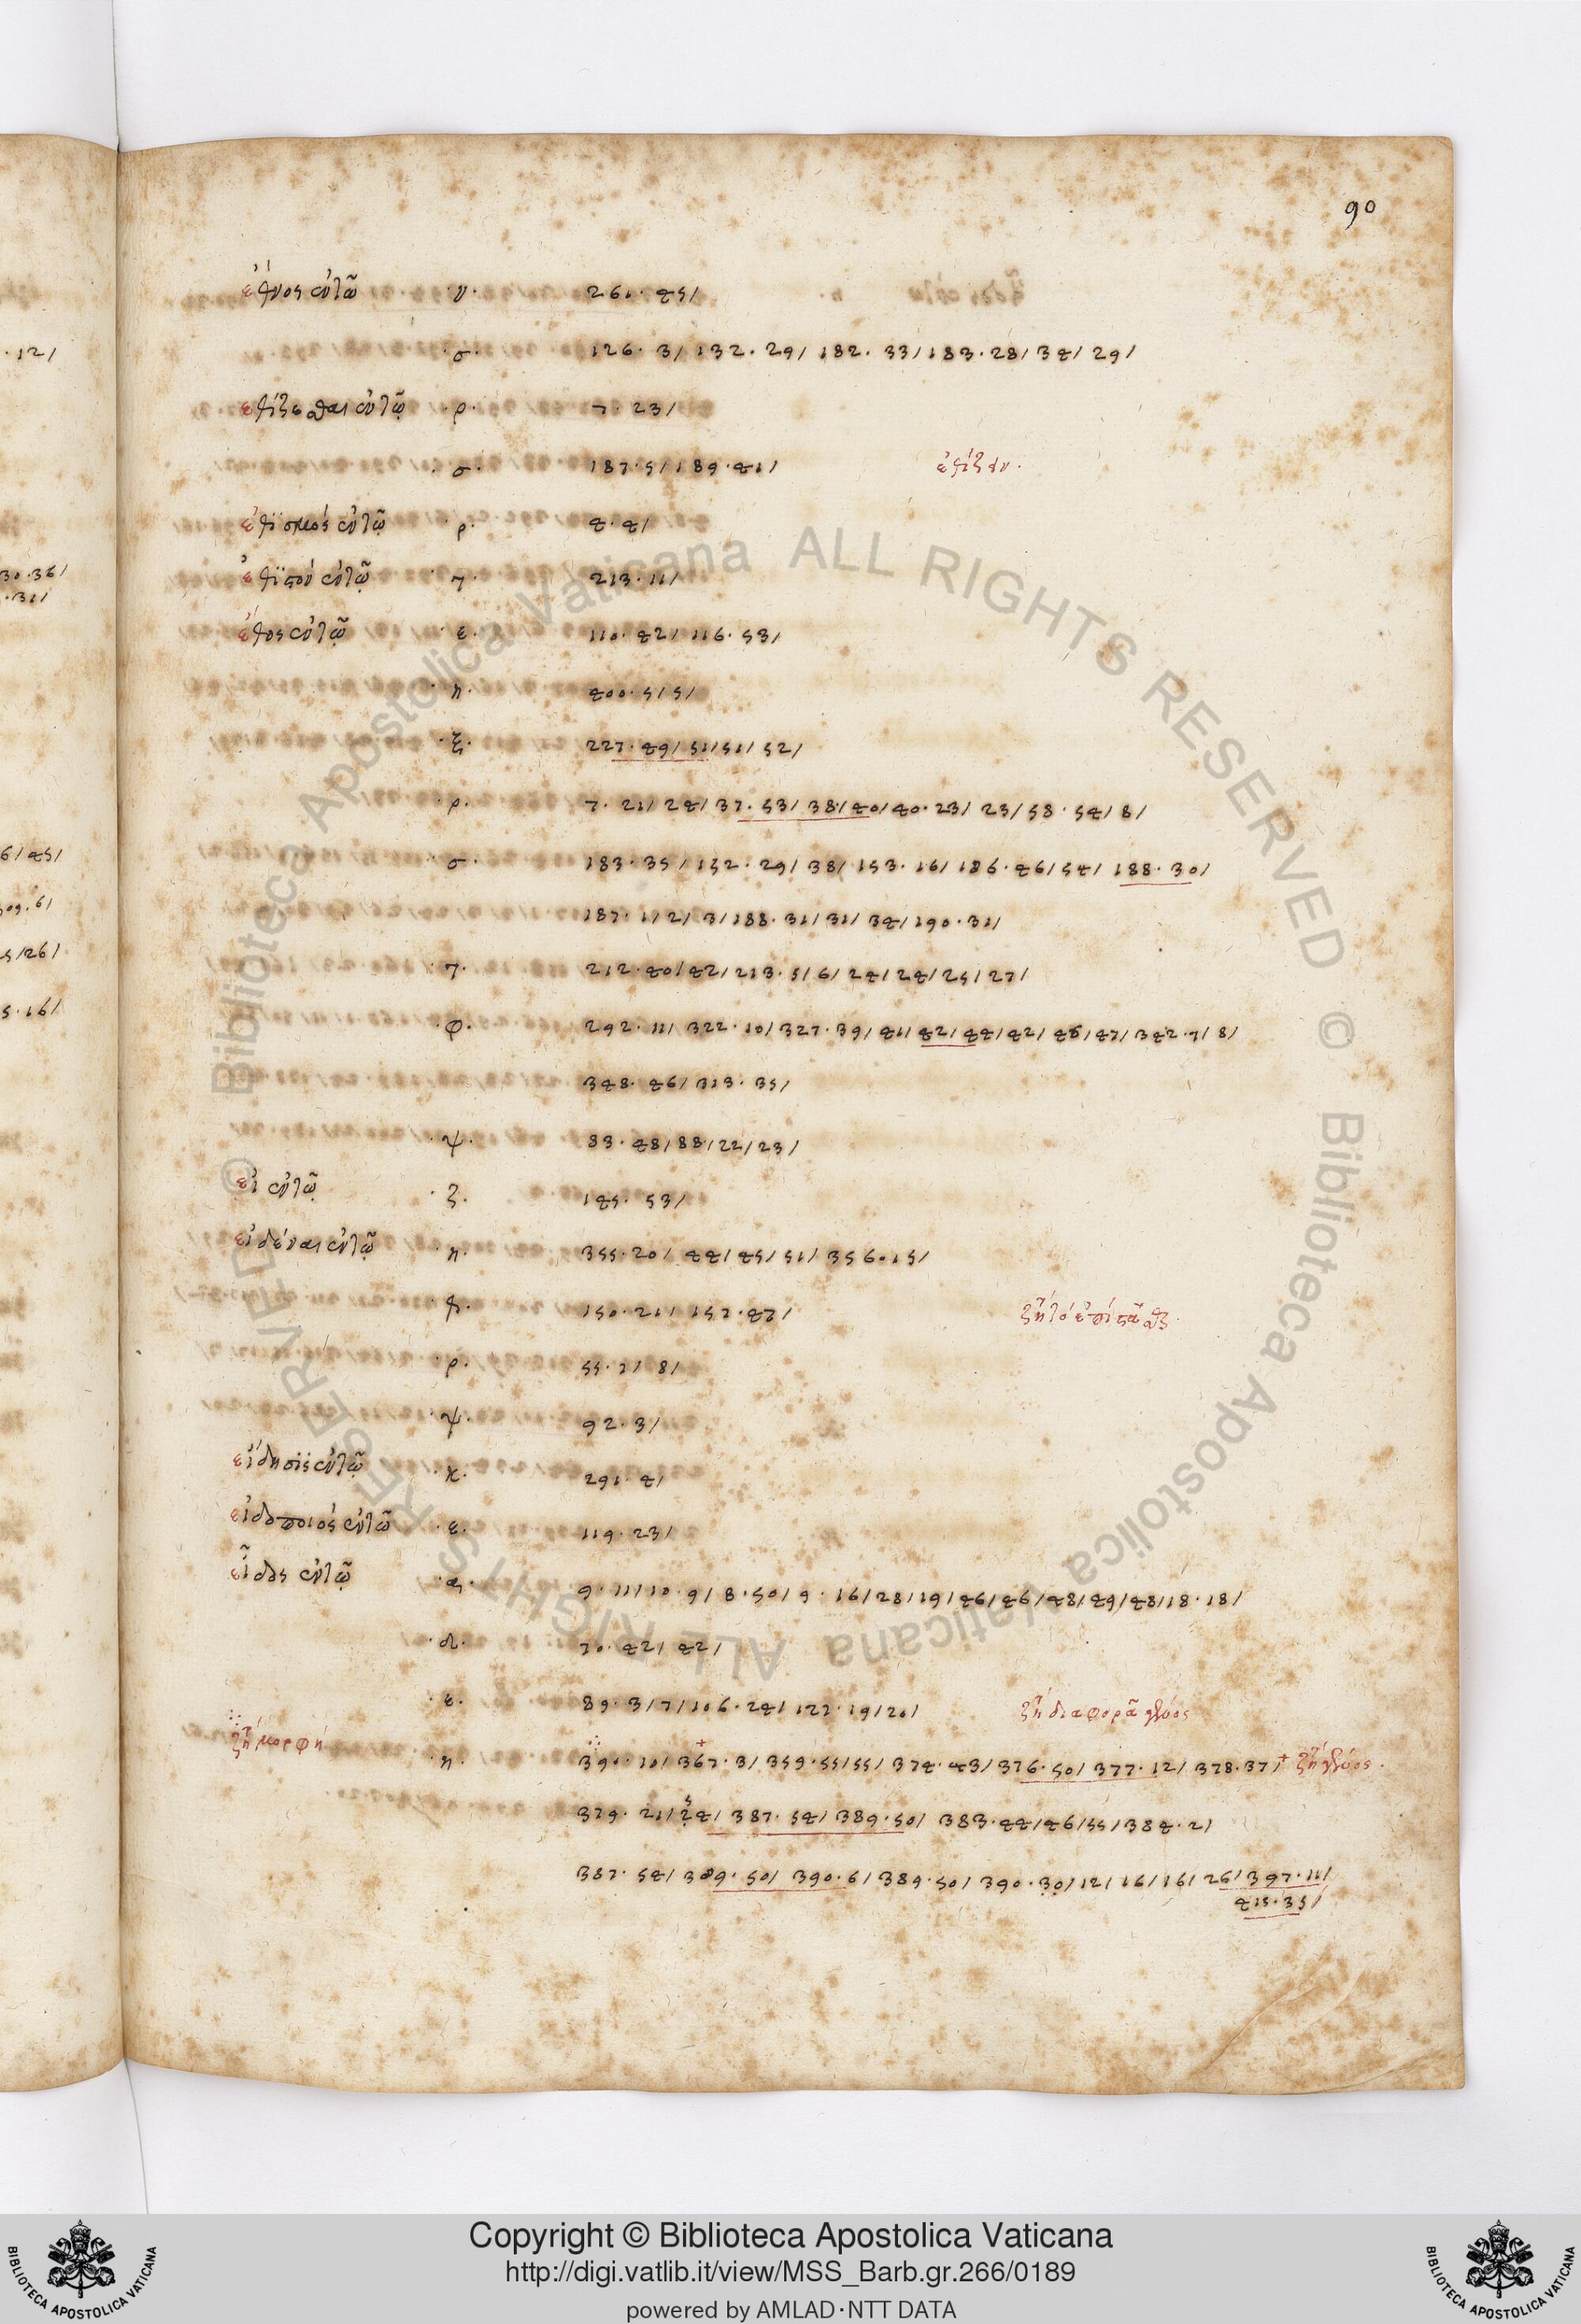 90
ἔθνος ἐν τῶ · ν · 260 · 45/
· σ · 126 · 3/ 132 · 29/ 182 · 33/ 183 · 28/ 34/ 29/
ἐθίζεσθαι ἐν τῶ · ρ · 7 · 23/
· σ · 187 · 5/ 189 · 41/ ἐθίζειν ·
ἐθισμός ἐν τῶ · ρ · 4 · 4/
ἐν τῶ · τ · 213 · 11/
ἔθος ἐν τῶ · ε · 110 · 42/ 116 · 53/
· η · 400 · 5/ 5/
· ξ · 227 · 49/ 51/ 51/ 52/
· ρ · 7 · 21/ 24/ 37 · 53/ 38/ 40/ 40 · 23/ 23/ 58 · 54/ 8/
· σ · 183 · 35/ 152 · 29/ 38/ 153 · 16/ 186 · 46/ 54/ 188 · 30/
187 · 1/ 2/ 3/ 188 · 31/ 31/ 34/ 190 · 31/
· τ · 212 · 40/ 42/ 213 · 5/ 6/ 24/ 24/ 25/ 27/
· φ · 292 · 11/ 322 · 10/ 327 · 39/ 41/ 42/ 44/ 42/ 46/ 47/ 342 · 7/ 8/
348 · 46/ 313 · 35/
· ψ · 83 · 48/ 88/ 22/ 23/
εἰ ἐν τῶ · ζ · 145 · 53/
εἰδέναι ἐν τῶ · η · 355 · 20/ 44/ 45/ 51/ 356 · 15/
· θ · 150 · 21/ 157 · 47/
· ρ · 55 · 7/ 8/
· ψ · 92 · 3/
εἴδησις ἐν τῶ · κ · 291 · 4/
εἰδοποιός ἐν τῶ · ε · 119 · 23/
εἶδος ἐν τῶ · α · 9 · 11/ 10 · 9/ 8 · 50/ 9 · 16/ 28/ 19/ 46/ 46/ 48/ 49/ 48/ 18 · 18/
· δ · 70 · 42/ 42/
· ε · 89 · 3/ 7/ 106 · 24/ 122 · 19/ 20/ ζή διαφορᾶ γένος
ζή μορφή · η · 390 · 10/ 367 · 3/ 359 · 55/ 55/ 374 · 43/ 376 · 50/ 377 · 12/ 378 · 37/ + ζή γένος ·
379 · 21/ 24/ 387 · 54/ 389 · 50/ 383 · 44/ 46/ 55/ 384 · 2/
387 · 54/ 389 · 50/ 390 · 6/ 389 · 50/ 390 · 30/ 12/ 16/ 16/ 26/ 397 · 11/
415 · 35/
· 12/
30 · 36/
· 31/
6/ 45/
309 · 6/
5/ 26/
5 · 16/
© Biblioteca Apostolica Vaticana ALL RIGHTS RESERVED
© Biblioteca Apostolica Vaticana ALL RIGHTS RESERVED
Copyright © Biblioteca Apostolica Vaticana
http://digi.vatlib.it/view/MSS_Barb.gr.266/0189
powered by AMLAD·NTT DATA
BIBLIOTECA APOSTOLICA VATICANA
BIBLIOTECA APOSTOLICA VATICANA